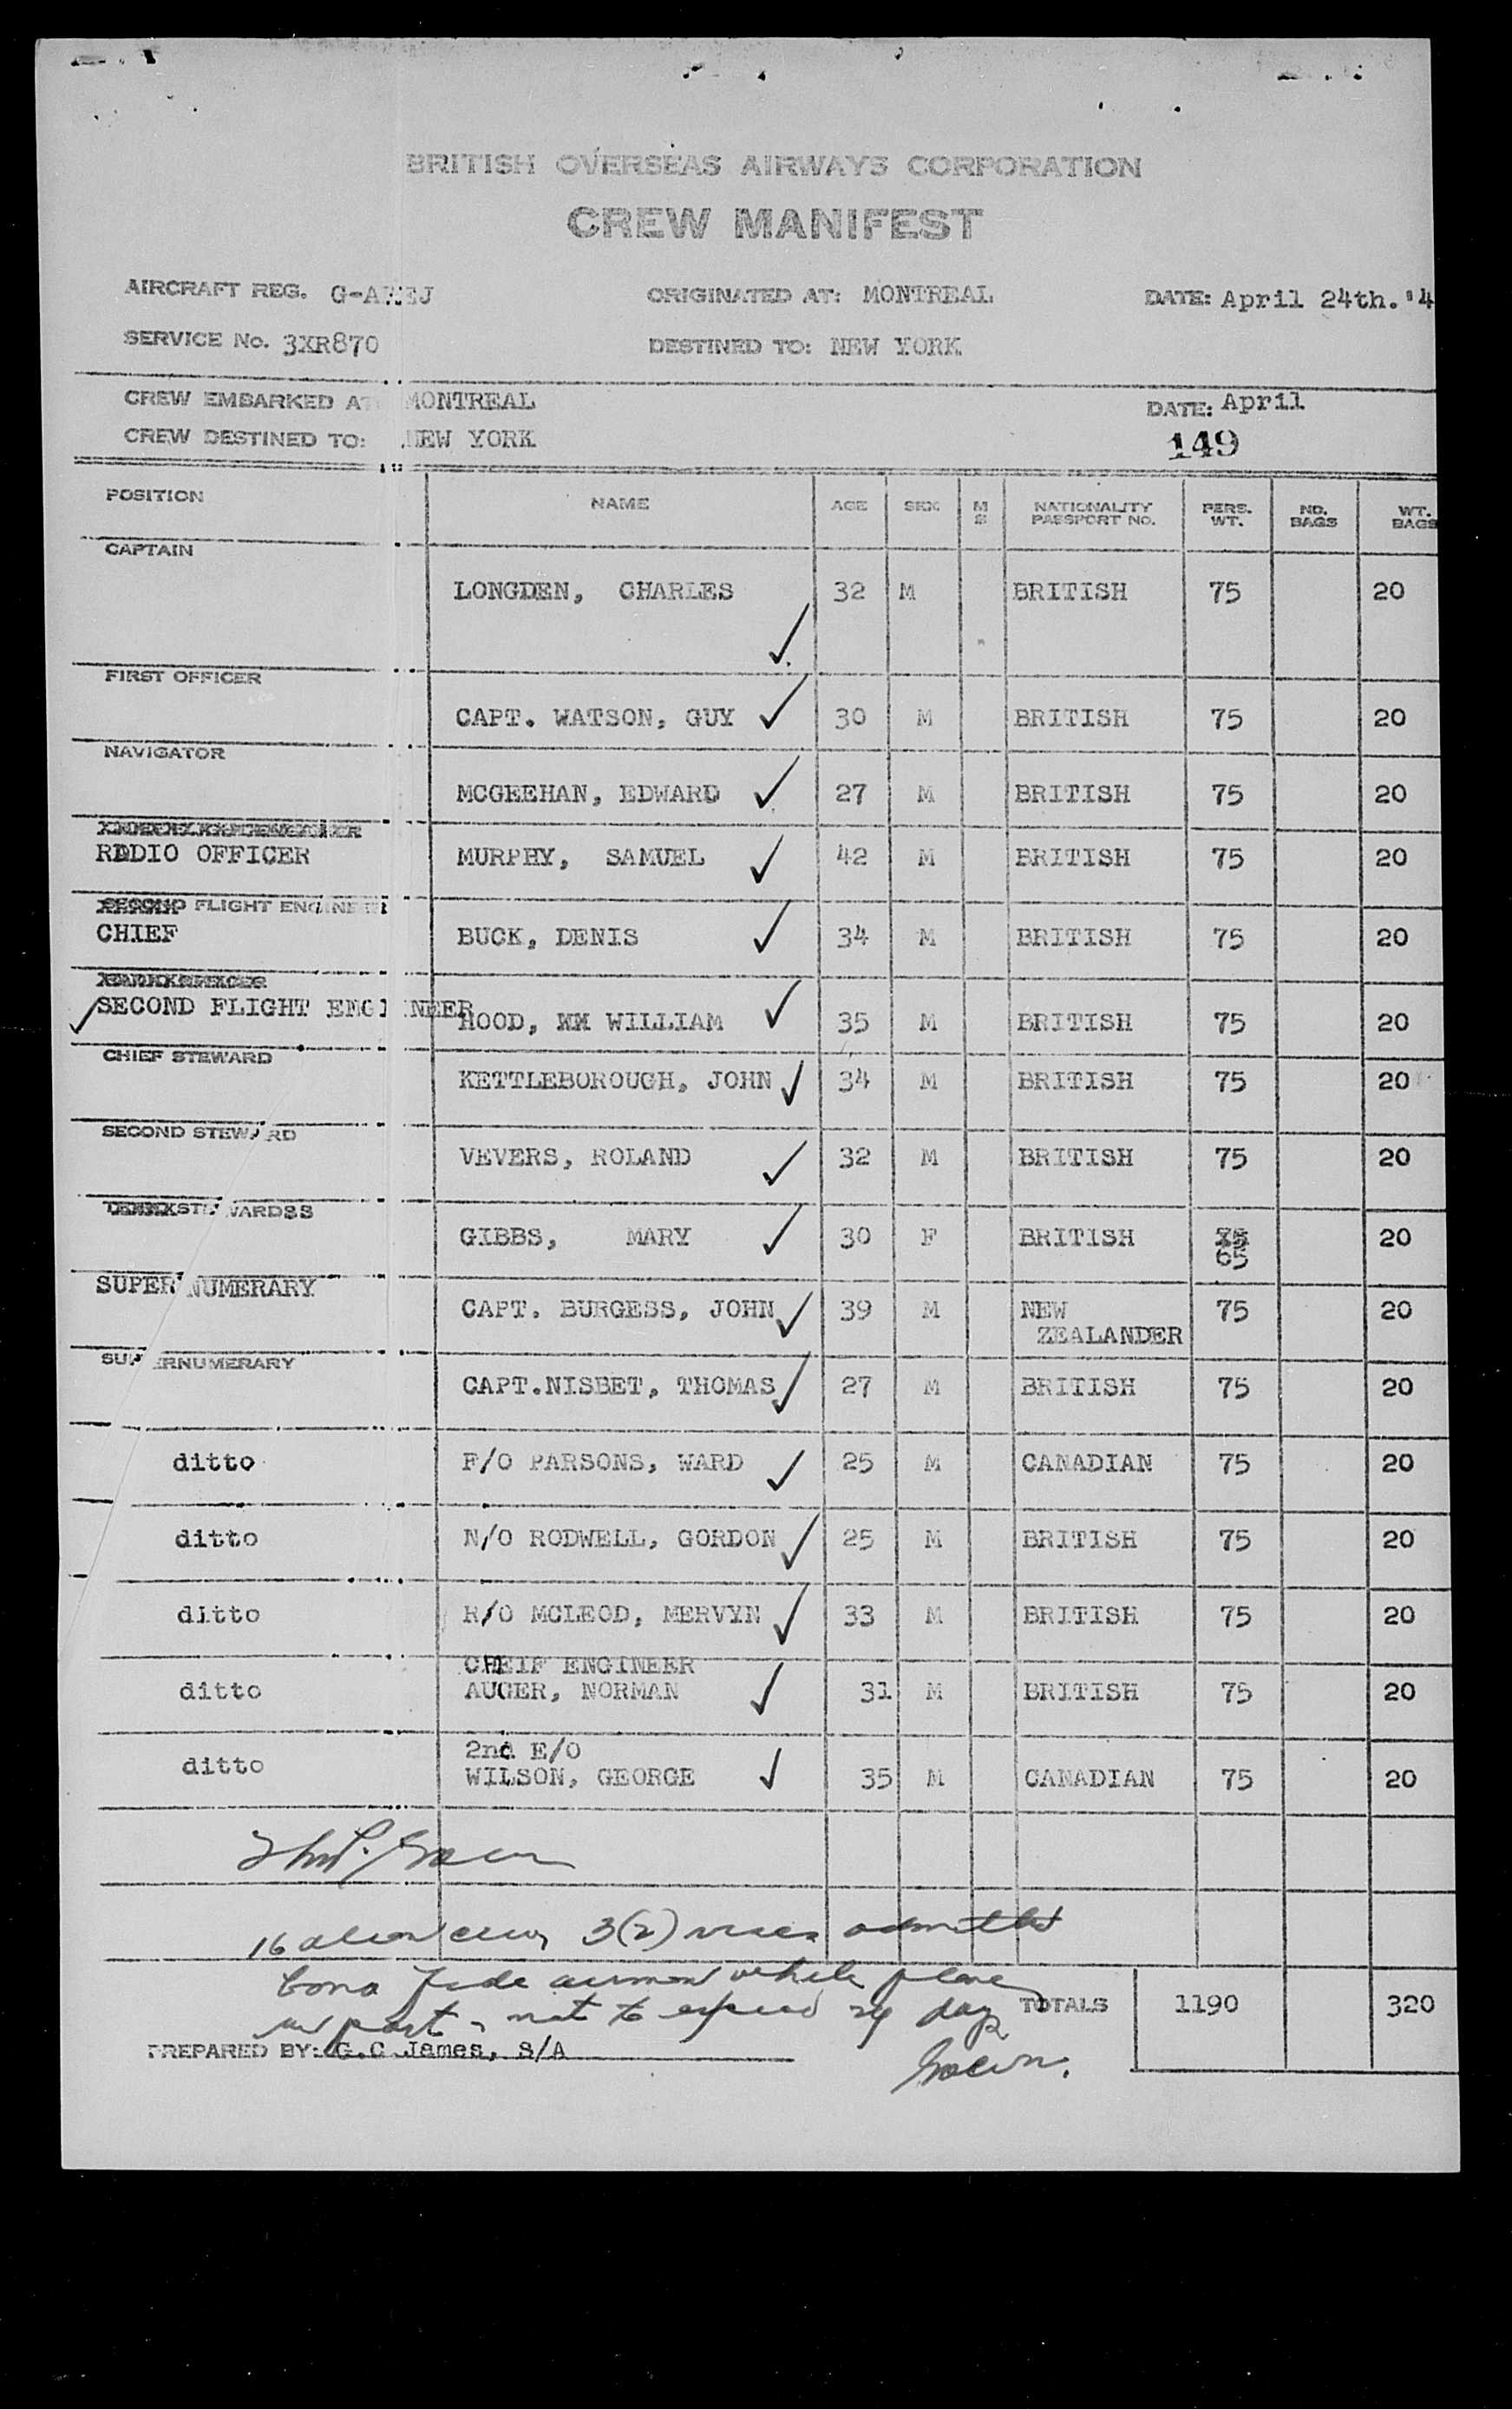 BRITISH OVERSEAS AIRWAYS CORPORATION
CREW MANIFEST
AIRCRAFT REG. ORIGINATED AT: MONTREAL DATE: April 24th. '4
SERVICE No. 3XR870 DESTINED TO: NEW YORK
CREW EMBARKED AT MONTREAL DATE: April
CREW DESTINED TO: NEW YORK 149
POSITION NAME AGE SEX M S NATIONALITY PASSPORT NO. PERS. WT. NO. BAGS WT. BAGS
CAPTAIN
LONGDEN, CHARLES 32 M BRITISH 75 20
FIRST OFFICER
CAPT. WATSON, GUY 30 M BRITISH 75 20
NAVIGATOR
MCGEEHAN, EDWARD 27 M BRITISH 75 20
RADIO OFFICER MURPHY, SAMUEL 42 M BRITISH 75 20
SECOND FLIGHT ENGINEER
CHIEF BUCK, DENIS 34 M BRITISH 75 20
SECOND FLIGHT ENGINEER
HOOD, WM WILLIAM 35 M BRITISH 75 20
CHIEF STEWARD
KETTLEBOROUGH, JOHN 34 M BRITISH 75 20
SECOND STEWARD
VEVERS, ROLAND 32 M BRITISH 75 20
STEWARDSS
GIBBS, MARY 30 F BRITISH 75 20
65
SUPERNUMERARY
CAPT. BURGESS, JOHN 39 M NEW 75 20
ZEALANDER
SUPERNUMERARY
CAPT.NISBET, THOMAS 27 M BRITISH 75 20
ditto F/O PARSONS, WARD 25 M CANADIAN 75 20
ditto N/O RODWELL, GORDON 25 M BRITISH 75 20
ditto R/O MCLEOD, MERVYN 33 M BRITISH 75 20
CHEIF ENGINEER
ditto AUGER, NORMAN 31 M BRITISH 75 20
2nd E/O
ditto WILSON, GEORGE 35 M CANADIAN 75 20
16 alien crew 3(2) visas admitted
bona fide airmen while plane
in port - not to exceed 29 days
TOTALS 1190 320
PREPARED BY: G.C.James, S/A